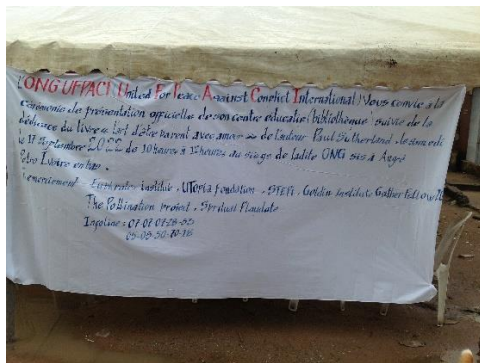 L'ONG UFPACI (United For Peace Against Conflict International) Vous convie à la
cérémonie de présentation officielle de son centre éducatif (bibliothèque) suivie de la
dédicace du livre « l'art d'être parent avec amour » de l'auteur Paul Sutherland, le samedi
le 17 Septembre 2022 de 10 heures à 12 heures au siège de ladite ONG sis à Angré
Petro Ivoire en bas.
: Euphrates institute, UTopia fondation - STEPi, Goldin Institute Gather
The Pollination project, Spiritual Plaudate
Infoline : 07-07
05-05-50